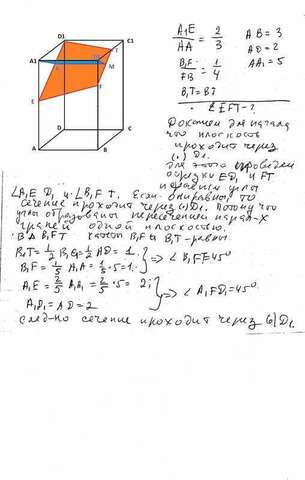 D1
C1
A1
T
M
F
E
D
C
A
B
A₁E/AA = 2/3 AB = 3
AD = 2
B₁F/FB = 1/4 AA₁ = 5
B₁T = BT
EFT - ?
Докажем для начала
что плоскость
проходит через
(·) D₁.
Для этого проведем
отрезки ED₁ и FT
углы
∠A₁ED₁ и ∠B₁FT. Если они равны то
сечение проходит через (·)D₁. Потому что
углы образованы пересечением парал-х
граней одной плоскостью.
В Δ B₁FT катеты B₁F и B₁T - равны.
B₁T = 1/2 B₁C₁ = 1/2 AD = 1
B₁F = 1/5 A₁A = 1/5 · 5 = 1. ⇒ ∠B₁FT = 45°
A₁E = 2/5 AA₁ = 2/5 · 5 = 2;
A₁D₁ = AD = 2 ⇒ ∠A₁FD₁ = 45°
След-но сечение проходит через (·)D₁.